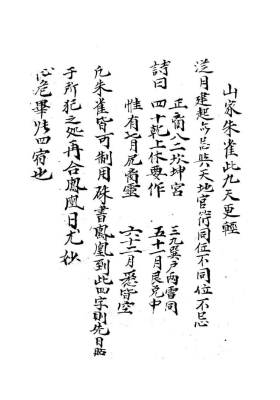 山家朱雀此九天更輕
從月建起与吕與天地官符同位不同位不忌
正商八二坎坤宮 三九巽戶兩雷同
詩曰 四十乾上休要作 五十一月艮兌中
惟有七月居离位 六十二月是皆空
凡朱雀皆可制用硃書鳳凰到此四字則先日貼
于所犯之处再合鳳凰日尤妙
心危畢张四宿也